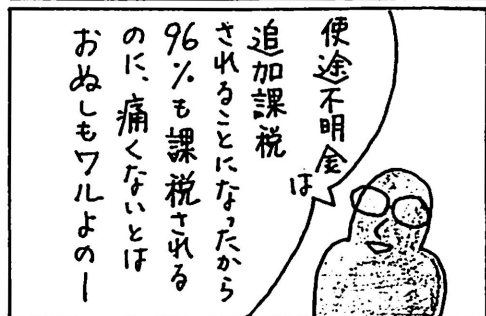 使途不明金は
追加課税
されることになったから
96%も課税される
のに、痛くないとは
おぬしもワルよのー